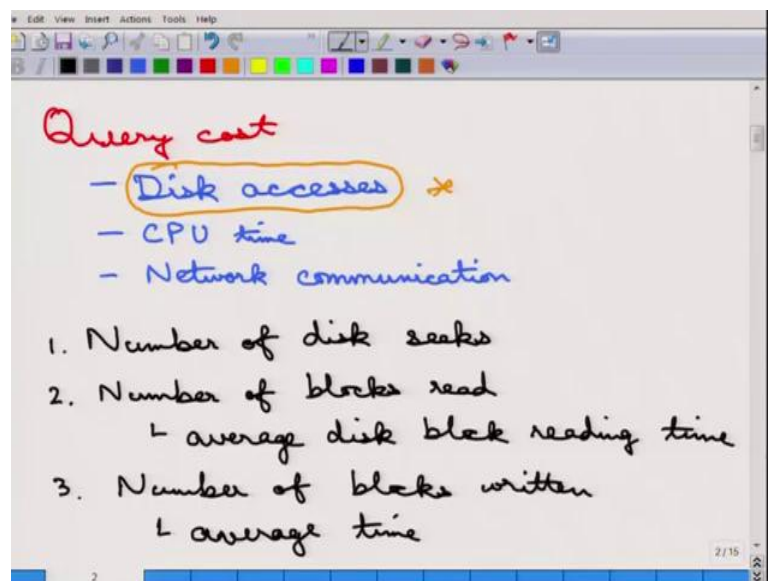 Edit View Insert Actions Tools Help
Query cost
- Disk accesses *
- CPU time
- Network communication
1. Number of disk seeks
2. Number of blocks read
└ average disk block reading time
3. Number of blocks written
└ average time
2/15
2